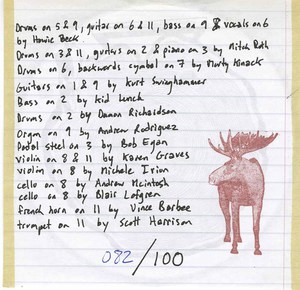 Drums on 5 & 9, guitar on 6 & 11, bass on 9 & vocals on 6
by Howie Beck
Drums on 3 & 11, guitars on 2 & piano on 3 by Mitch Roth
Drums on 6, backwards cymbal on 7 by Marty Kinack
Guitars on 1 & 9 by Kurt Swinghammer
Bass on 2 by Kid Lunch
Drums on 2 by Damon Richardson
Organ on 9 by Andrew Rodriguez
Pedal steel on 3 by Bob Egan
violin on 8 & 11 by Karen Graves
violin on 8 by Michele Irion
cello on 8 by Andrew McIntosh
cello on 8 by Blair Lofgren
french horn on 11 by Vince Barbee
trumpet on 11 by Scott Harrison
082/100